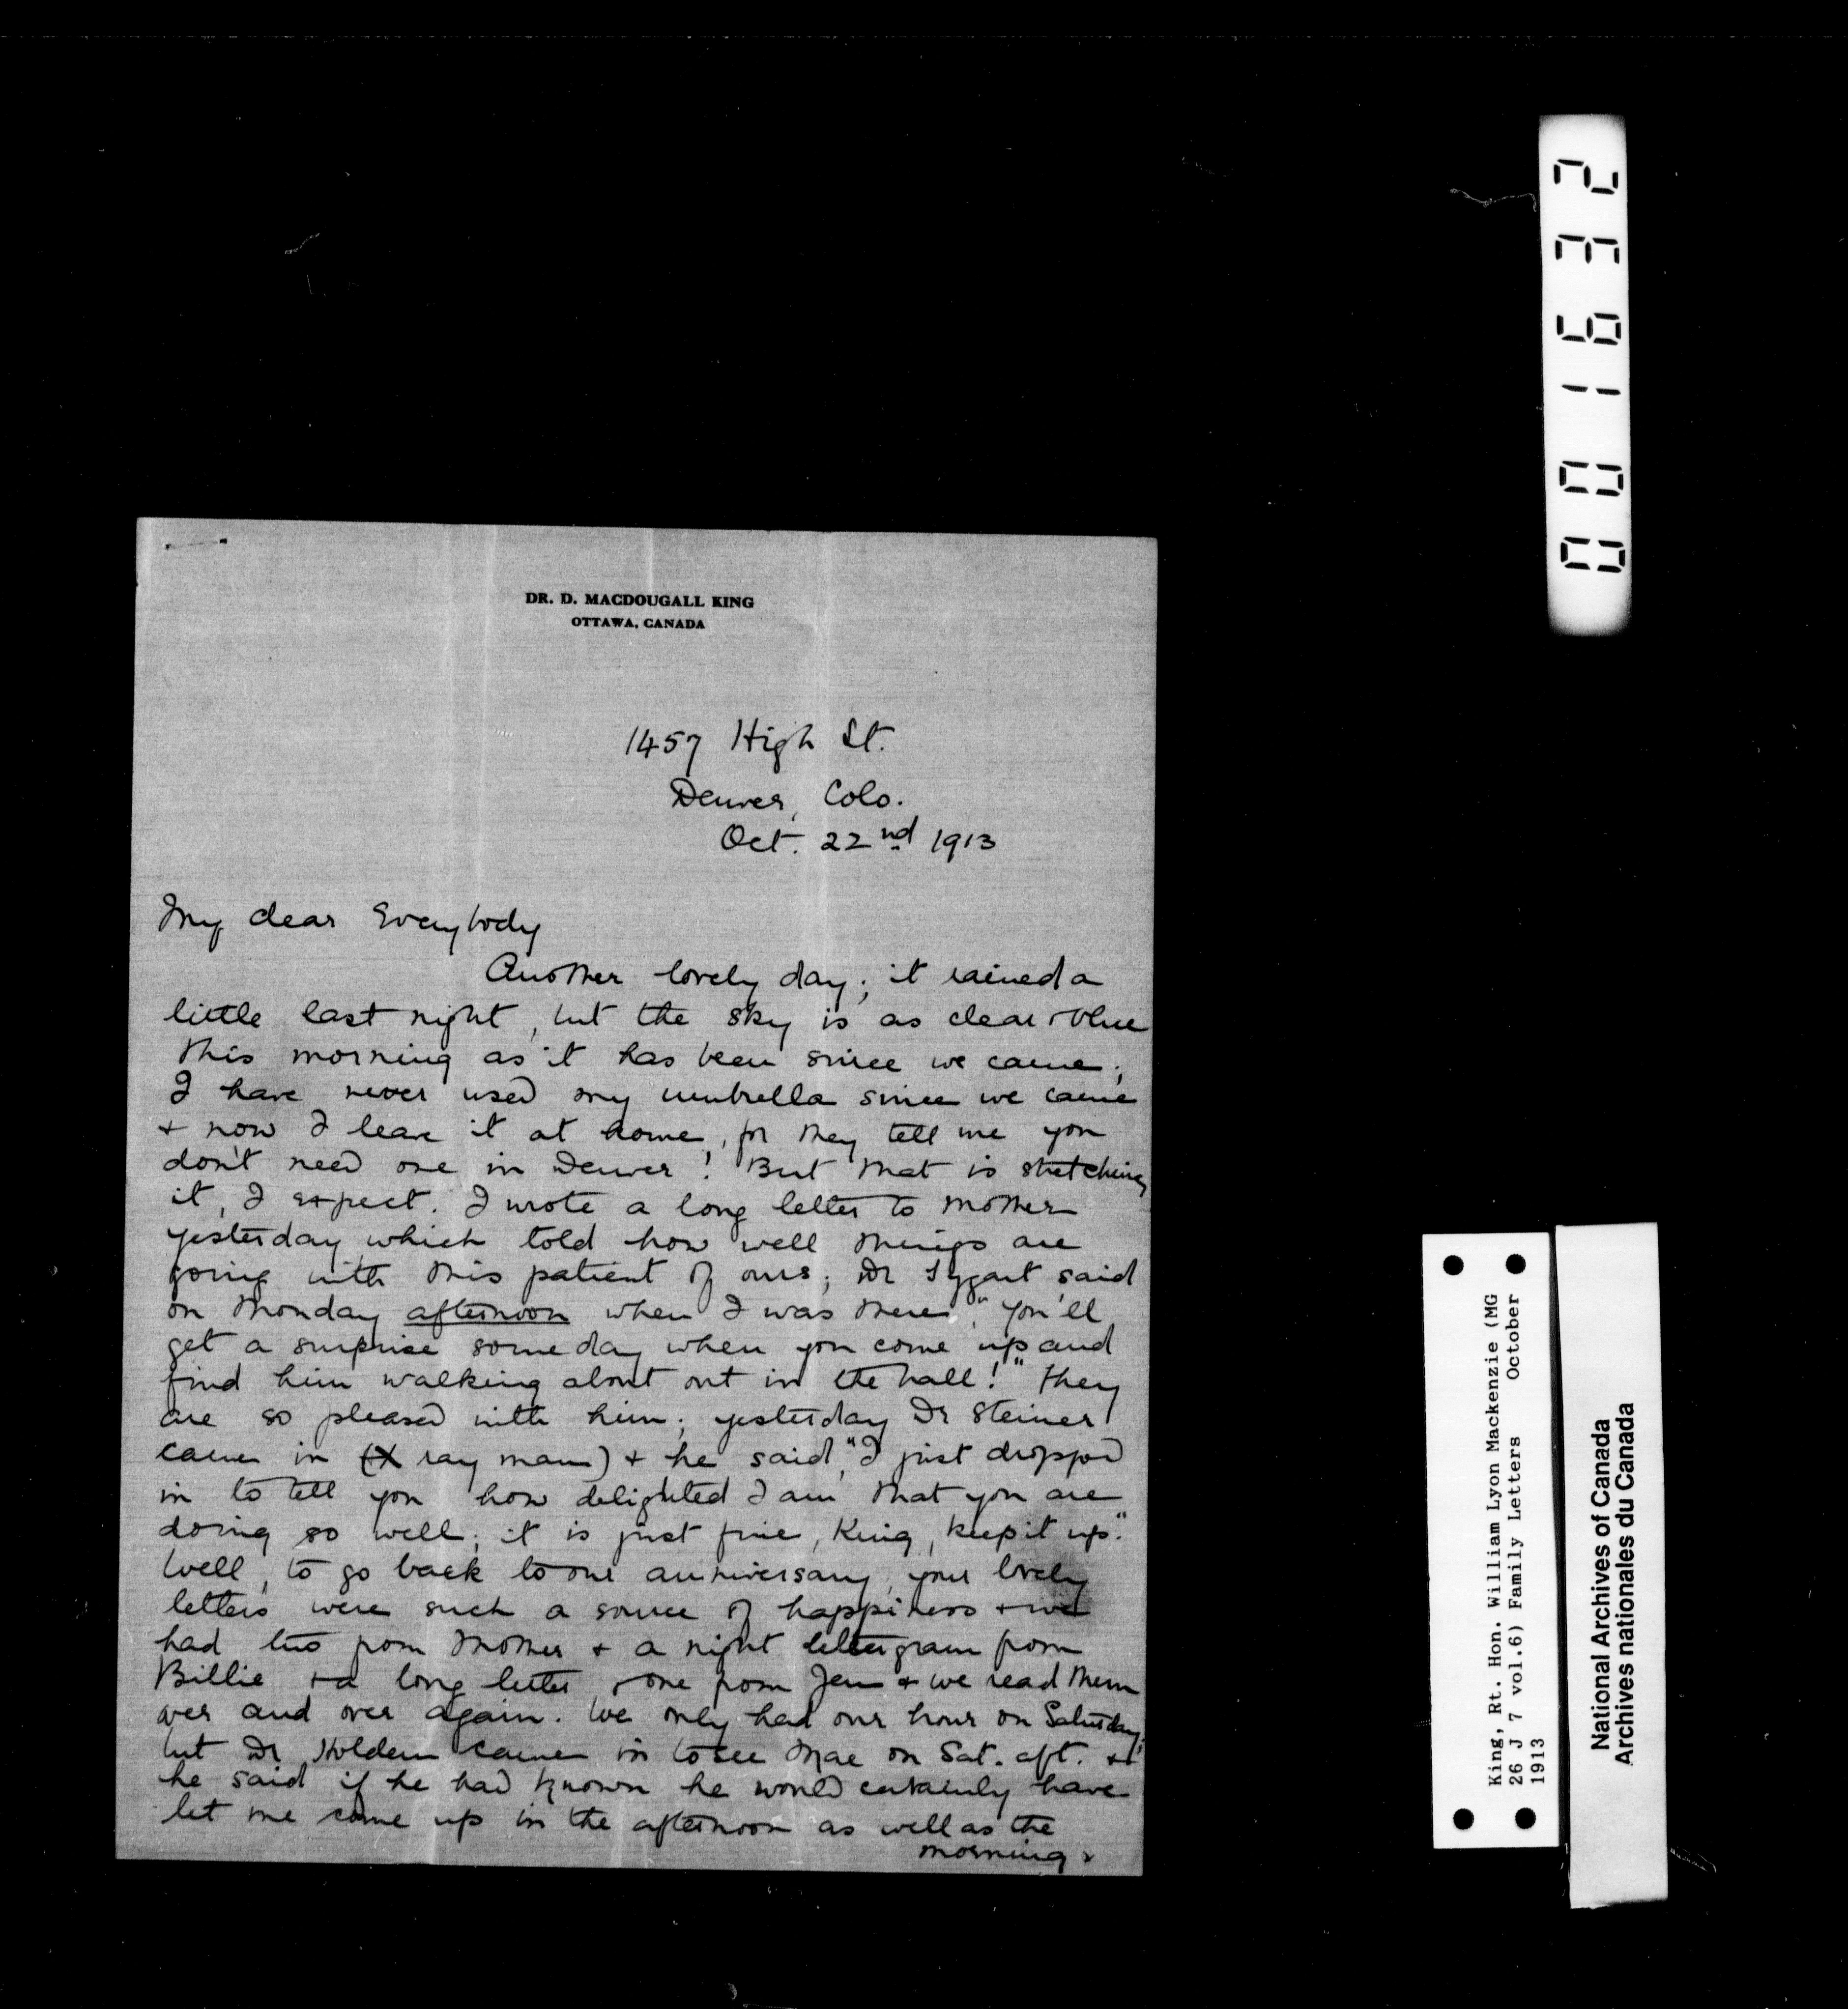 DR. D. MACDOUGALL KING
OTTAWA, CANADA
1457 High St.
Denver, Colo.
Oct. 22nd 1913
My dear Everybody
Another lovely day; it rained a
little last night, but the sky is as clear & blue
this morning as it has been since we came;
I have never used my umbrella since we came
& now I leave it at home, for they tell me you
don't need one in Denver! But that is stretching
it, I expect. I wrote a long letter to Mother
yesterday which told how well things are
going with this patient of ours; Dr said
on Monday afternoon when I was there, "You'll
get a surprise some day when you come up and
find him walking about out in the hall!" They
are so pleased with him; yesterday Dr Steiner
came in (X ray man) & he said, "I just dropped
in to tell you how delighted I am that you are
doing so well; it is just fine, King, keep it up."
Well, to go back to our anniversary, your lovely
letters were such a source of happiness & we
had two from Mother & a night lettergram from
Billie & a long letter & one from Jen & we read them
over and over again. We only had our hour on Saturday,
but Dr Holden came in to see Mac on Sat. aft. &
he said if he had known he would certainly have
let me come up in the afternoon as well as the
morning.
001632
King, Rt. Hon. William Lyon Mackenzie (MG
26 J 7 vol.6) Family Letters October
1913
National Archives of Canada
Archives nationales du Canada